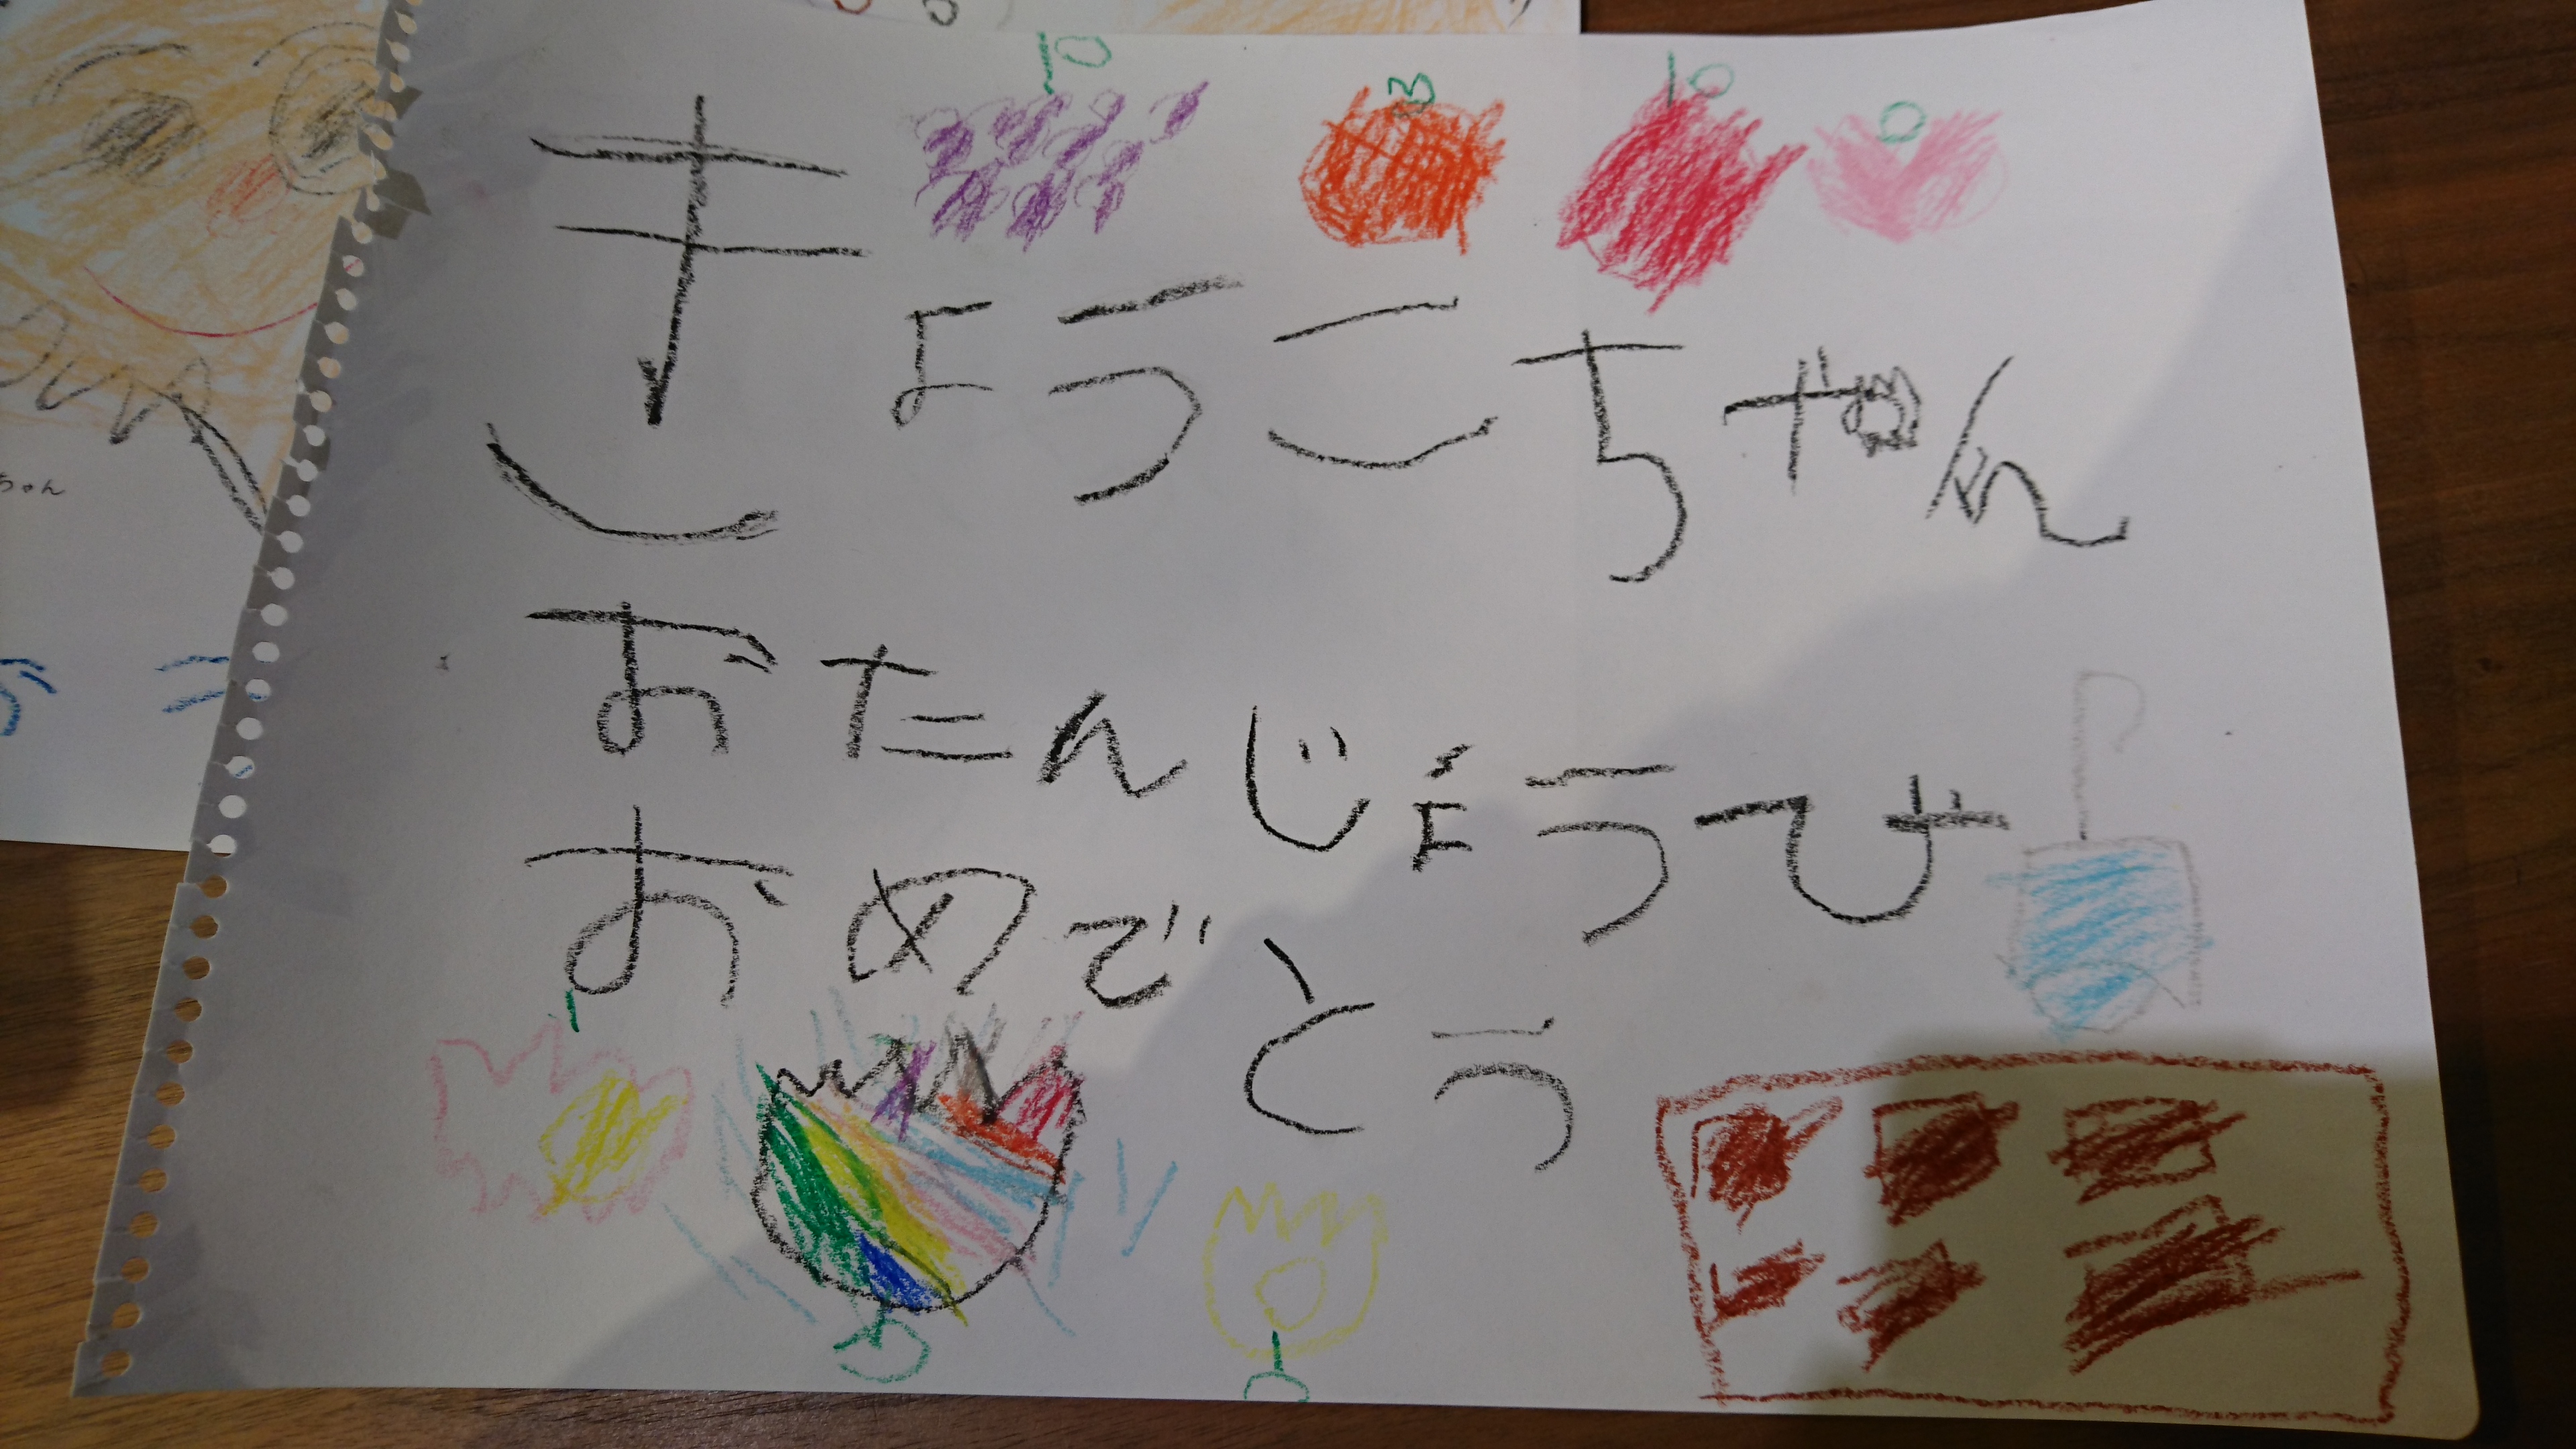 きょうこちゃん
おたんじょうひ
おめでとう
ちゃん